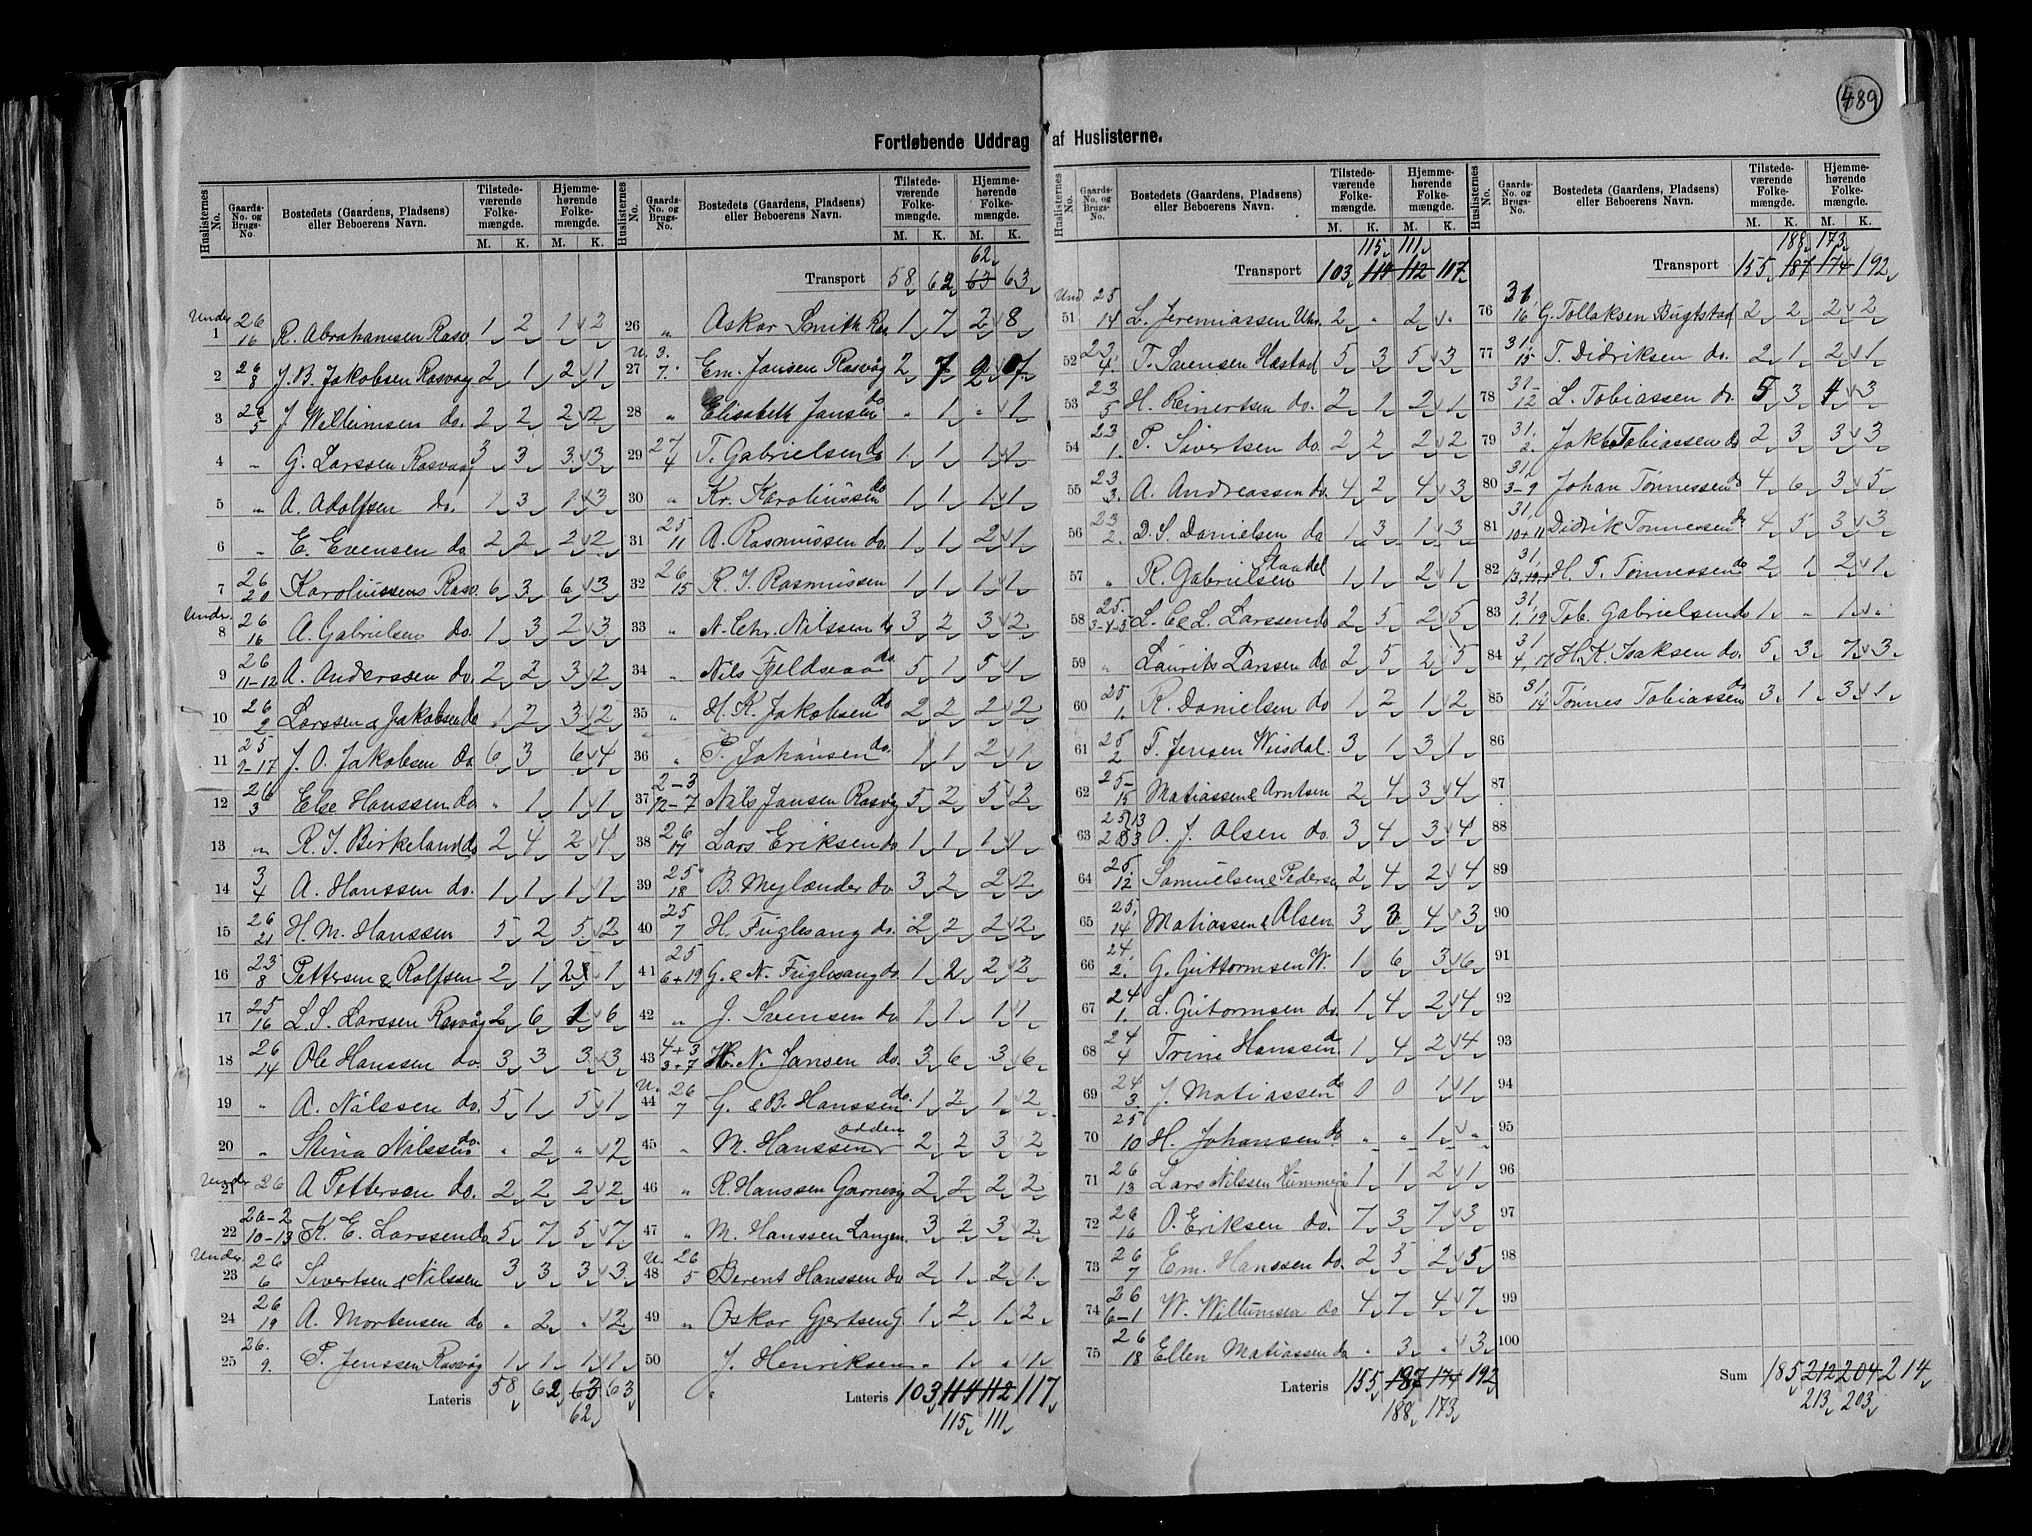 489
Fortløbende Uddrag af Huslisterne.
Huslisternes No. | Gaards-No. og Brugs-No. | Bostedets (Gaardens, Pladsens) eller Beboerens Navn. | Tilstedeværende Folkemængde. M. K. | Hjemmehørende Folkemængde. M. K.
Under 1 26/16 R. Abrahamsen Rasv. 1 2 1 2
2 26/8 J. B. Jakobsen Rasvaag 2 1 2 1
3 26/5 J. Willumsen do. 2 2 2 2
4 " G. Larssen Rasvaag 3 3 3 3
5 " A. Adolfsen do. 1 3 1 3
6 " E. Evensen do 2 2 2 2
7 26/20 Karoliussens Rasv. 6 3 6 3
Under 8 26/16 A. Gabrielsen do. 1 3 2 3
9 26/11-12 A. Anderssen do. 2 2 3 2
10 26/2 Larssen & Jakobsen do 1 2 3 2
11 25/2-17 J. O. Jakobsen do 6 3 6 4
12 26/3 Else Hanssen do " 1 1 1
13 " R. J. Birkeland do 2 4 2 4
14 3/4 A. Hanssen do. 1 1 1 1
15 26/21 H. M. Hanssen 5 2 5 2
16 23/8 Pettersen & Rolfsen 2 1 2 1
17 25/16 L. S. Larssen Rasvåg 2 6 2 6
18 26/14 Ole Hanssen do. 3 3 3 3
19 " A. Nilssen do. 5 1 5 1
20 " Stina Nilssen do. " 2 " 2
Under 21 26 A Pettersen do. 2 2 2 2
22 26-2/10-13 K. E. Larssen do. 5 7 5 7
Under 23 26/6 Sivertsen & Nilssen 3 3 3 3
24 26/19 A. Mortensen do " 2 " 2
25 26./9. P. Jenssen Rasvåg 1 1 1 1
Lateris 58 62 63 63
62
Huslisternes No. | Gaards-No. og Brugs-No. | Bostedets (Gaardens, Pladsens) eller Beboerens Navn. | Tilstedeværende Folkemængde. M. K. | Hjemmehørende Folkemængde. M. K.
62
Transport 58 62 63 63
26 " Askar Smith Ras 1 7 2 8
U. 27 3./7. Em. Jansen Rasvåg 2 7 2 7
28 " Elisabeth Jansen do " 1 " 1
29 27/4 T. Gabrielsen do 1 1 1 1
30 " Kr. Karoliussen do 1 1 1 1
31 25/11 A. Rasmussen do. 1 1 2 1
32 26/15 R. J. Rasmussen 1 1 1 1
33 " N. Chr. Nilssen do 3 2 3 2
34 " Nils Fjeldsaa do. 5 1 5 1
35 " H. K. Jakobsen do 2 2 2 2
36 " P. Johansen do. 1 1 2 1
37 2-3/12-7 Nils Jansen Rasvåg 5 2 5 2
38 26/17 Lars Eriksen do 1 1 1 1
39 25/18 B. Mylænder do. 3 2 2 2
40 25/7 H. Fuglesang do. 2 2 2 2
41 25/6+19 G. & N. Fuglesang do. 1 2 2 2
42 " J. Svensen do 1 1 1 1
43 4+3/3+7 H. N. Jansen do. 3 6 3 6
U. 44 26/7 G. & B. Hanssen do. 1 2 1 2
45 " M. Hanssen odden 2 2 3 2
46 " R. Hanssen Garnevig 2 2 2 2
47 " M. Hanssen Langen. 3 2 3 2
U. 48 26/5 Berent Hanssen do 2 1 2 1
49 " Oskar Gjertsen G 1 2 1 2
50 " J. Henriksen " 1 " 1
Lateris 103 114 112 117
115 111
Huslisternes No. | Gaards-No. og Brugs-No. | Bostedets (Gaardens, Pladsens) eller Beboerens Navn. | Tilstedeværende Folkemængde. M. K. | Hjemmehørende Folkemængde. M. K.
115 111
Transport 103 114 112 117
Und. 51 25/14 L. Jeremiassen Uhr. 2 " 2 "
52 23/4. T. Svensen Hæstad 5 3 5 3
53 23/5 H. Reinertsen do. 2 1 2 1
54 23/1. P. Sivertsen do. 2 2 2 2
55 23/3. A. Andreassen do. 4 2 4 3
56 23/2. D. S. Danielsen do 1 3 1 3
57 " R. Gabrielsen 1 1 2 1
58 25./3-4-5 L. C & L. Larssen do 2 5 2 5
59 " Laurits Larssen do 2 5 2 5
60 25/1. R. Danielsen do 1 2 1 2
61 25/2 T. Jensen Wiisdal. 3 1 3 1
62 25-/15 Matiassen & Arntsen 2 4 3 4
63 O. J. Olsen do. 3 4 3 4
64 25./12 Samuelsen & Peders 2 4 2 4
65 25,/14 Matiassen & Olsen 3 3 4 3
66 24,/2. G. Guttormsen W. 1 6 3 6
67 24/1. L. Guttormsen do. 1 4 2 4
68 24/4 Trine Hanssen do 1 4 2 4
69 24/3. J. Matiassen do 0 0 1 1
70 25/10 H. Johansen do " " 1 "
71 26/13 Lars Nilssen Hummer 1 1 2 1
72 26/16 O. Eriksen do. 7 3 7 3
73 26/7 Em. Hanssen do. 2 5 2 5
74 26/6-1 W. Willumsen do 4 7 4 7
75 26/18 Ellen Matiassen do " 3 " 3
Lateris 155 187 174 192
188 173
Huslisternes No. | Gaards-No. og Brugs-No. | Bostedets (Gaardens, Pladsens) eller Beboerens Navn. | Tilstedeværende Folkemængde. M. K. | Hjemmehørende Folkemængde. M. K.
188 173
Transport 155 187 174 192
76 31/16 G. Tollaksen Bugtstad 2 2 2 2
77 31,/15 T. Didriksen do. 2 1 2 1
78 31-/12 L. Tobiassen do. 5 3 4 3
79 31./2. Jakob Tobiassen do 2 3 3 3
80 31,/3-9 Johan Tønnessen do 4 6 3 5
81 31,/10+11 Didrik Tønnessen do 4 5 3 3
82 31, H. T. Tønnessen do 2 1 2 1
83 31,/1, 19 Tob. Gabrielsen do 1 " 1 "
84 31/4, 17 H. K. Isaksen do. 5 3 7 3
85 31,/14 Tønnes Tobiassen do 3 1 3 1
86
87
88
89
90
91
92
93
94
95
96
97
98
99
100
Sum 185 212 204 214
213 203